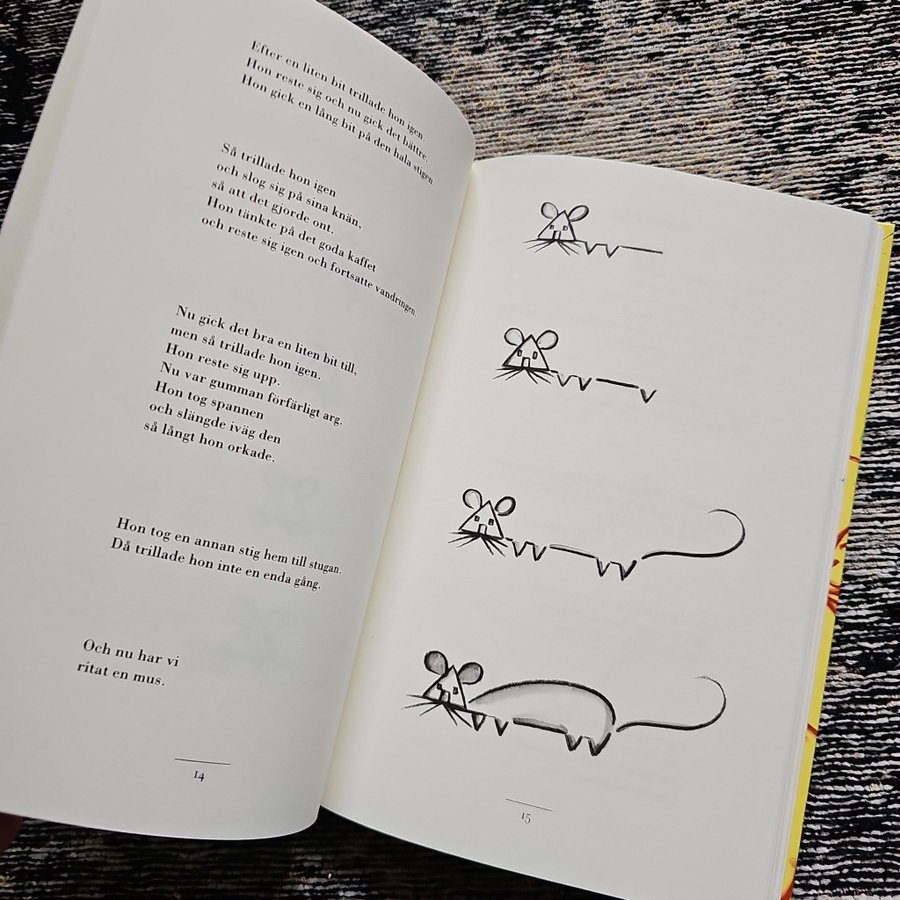 Efter en liten bit trillade hon igen.
Hon reste sig och nu gick det bättre.
Hon gick en lång bit på den hala stigen.
Så trillade hon igen
och slog sig på sina knän,
så att det gjorde ont.
Hon tänkte på det goda kaffet
och reste sig igen och fortsatte vandringen.
Nu gick det bra en liten bit till,
men så trillade hon igen.
Hon reste sig upp.
Nu var gumman förfärligt arg.
Hon tog spannen
och slängde iväg den
så långt hon orkade.
Hon tog en annan stig hem till stugan.
Då trillade hon inte en enda gång.
Och nu har vi
ritat en mus.
14
15